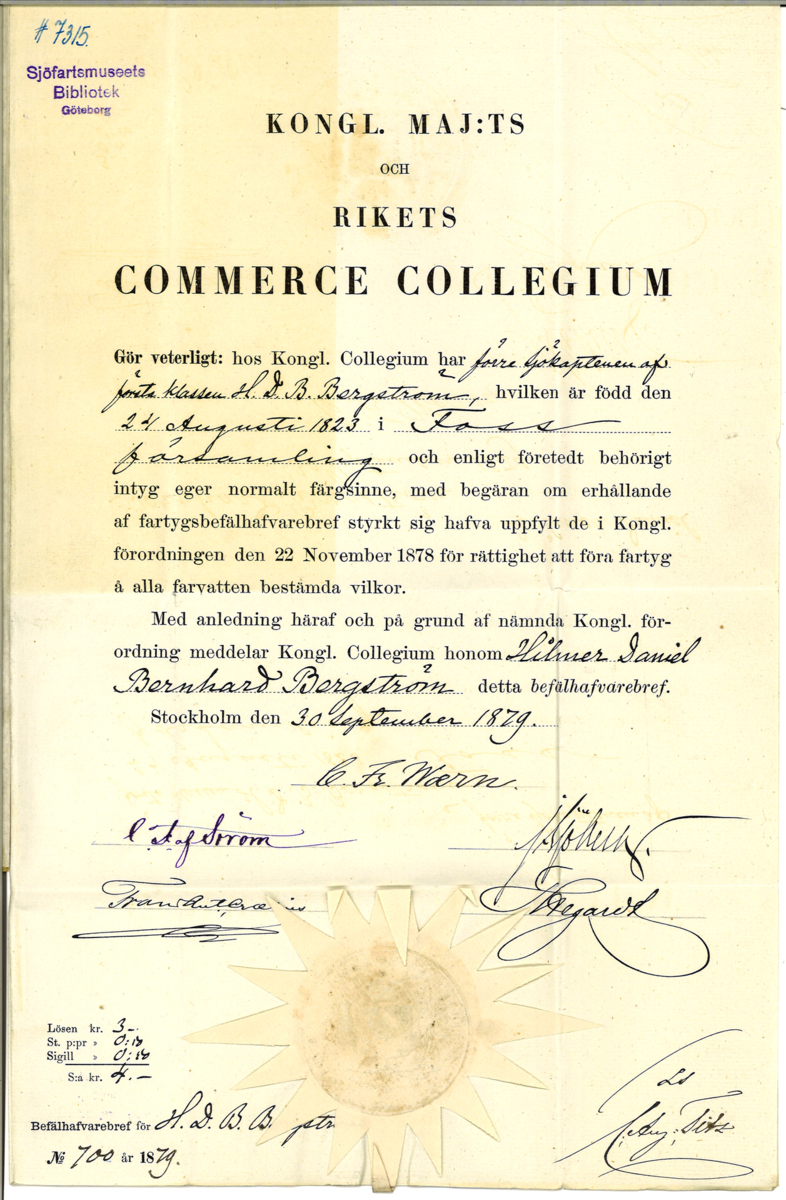 # 7315.
Sjöfartsmuseets
Bibliotek
Göteborg
KONGL. MAJ:TS
OCH
RIKETS
COMMERCE COLLEGIUM
Gör veterligt: hos Kongl. Collegium har förre Sjökaptenen af
första klassen H. D. B. Bergström, hvilken är född den
24 Augusti 1823 i Foss
församling och enligt företedt behörigt
intyg eger normalt färgsinne, med begäran om erhållande
af fartygsbefälhafvarebref styrkt sig hafva uppfylt de i Kongl.
förordningen den 22 November 1878 för rättighet att föra fartyg
å alla farvatten bestämda vilkor.
Med anledning häraf och på grund af nämnda Kongl. för-
ordning meddelar Kongl. Collegium honom Hilmer Daniel
Bernhard Bergström detta befälhafvarebref.
Stockholm den 30 September 1879.
C. Fr. Wærn.
af Ström
Lösen kr. 3-
St. p:pr »
Sigill »
S:a kr. 4.-
Ls
Befälhafvarebref för H. D. B. B
№ 700 år 1879.